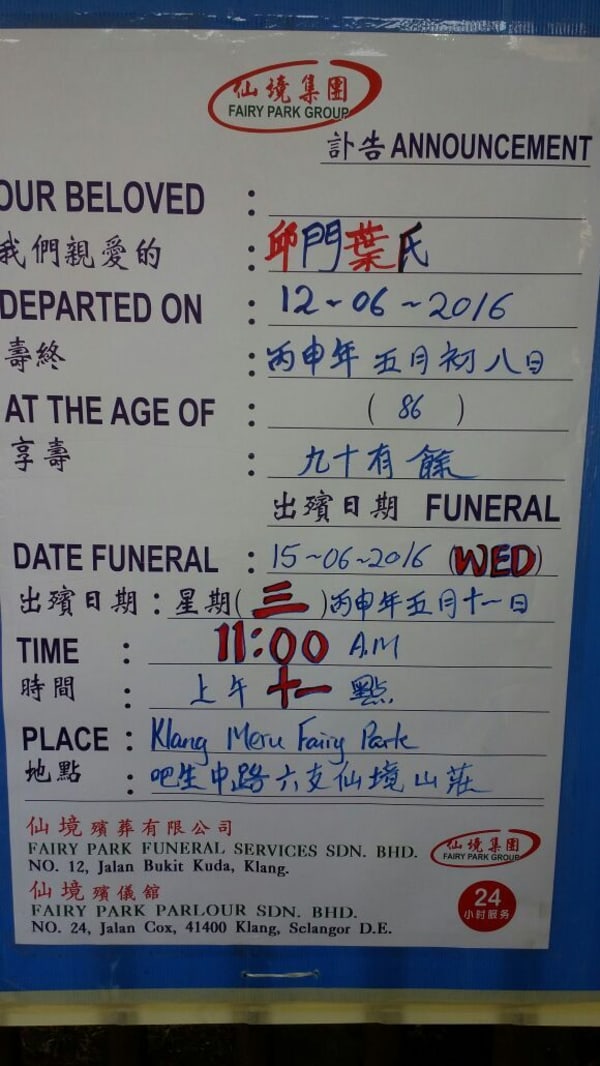 仙境集團
FAIRY PARK GROUP
訃告 ANNOUNCEMENT
OUR BELOVED :
我們親愛的 : 邱門葉氏
DEPARTED ON : 12~06~2016
壽終 : 丙申年五月初八日
AT THE AGE OF : ( 86 )
享壽 : 九十有餘
出殯日期 FUNERAL
DATE FUNERAL : 15~06~2016 (WED)
出殯日期 : 星期( 三 )丙申年五月十一日
TIME : 11:00 A.M
時間 : 上午十一點
PLACE : Klang Meru Fairy Park
地點 : 吧生中路六支仙境山莊
仙境殯葬有限公司
FAIRY PARK FUNERAL SERVICES SDN. BHD.
NO. 12, Jalan Bukit Kuda, Klang.
仙境集團
FAIRY PARK GROUP
仙境殯儀舘
FAIRY PARK PARLOUR SDN. BHD.
NO. 24, Jalan Cox, 41400 Klang, Selangor D.E.
24
小时服务